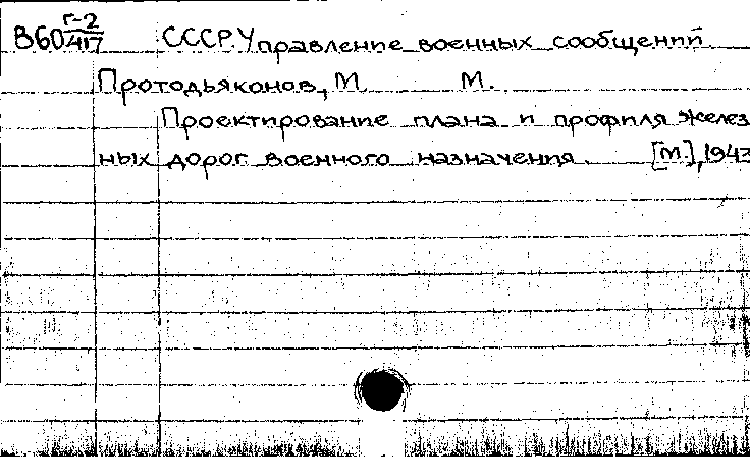 В60 Г-2/417 СССР. Управление военных сообщений.
Протодьяконов, М. М.
Проектирование плана и профиля желез
ных дорог военного назначения. [М.], 1943